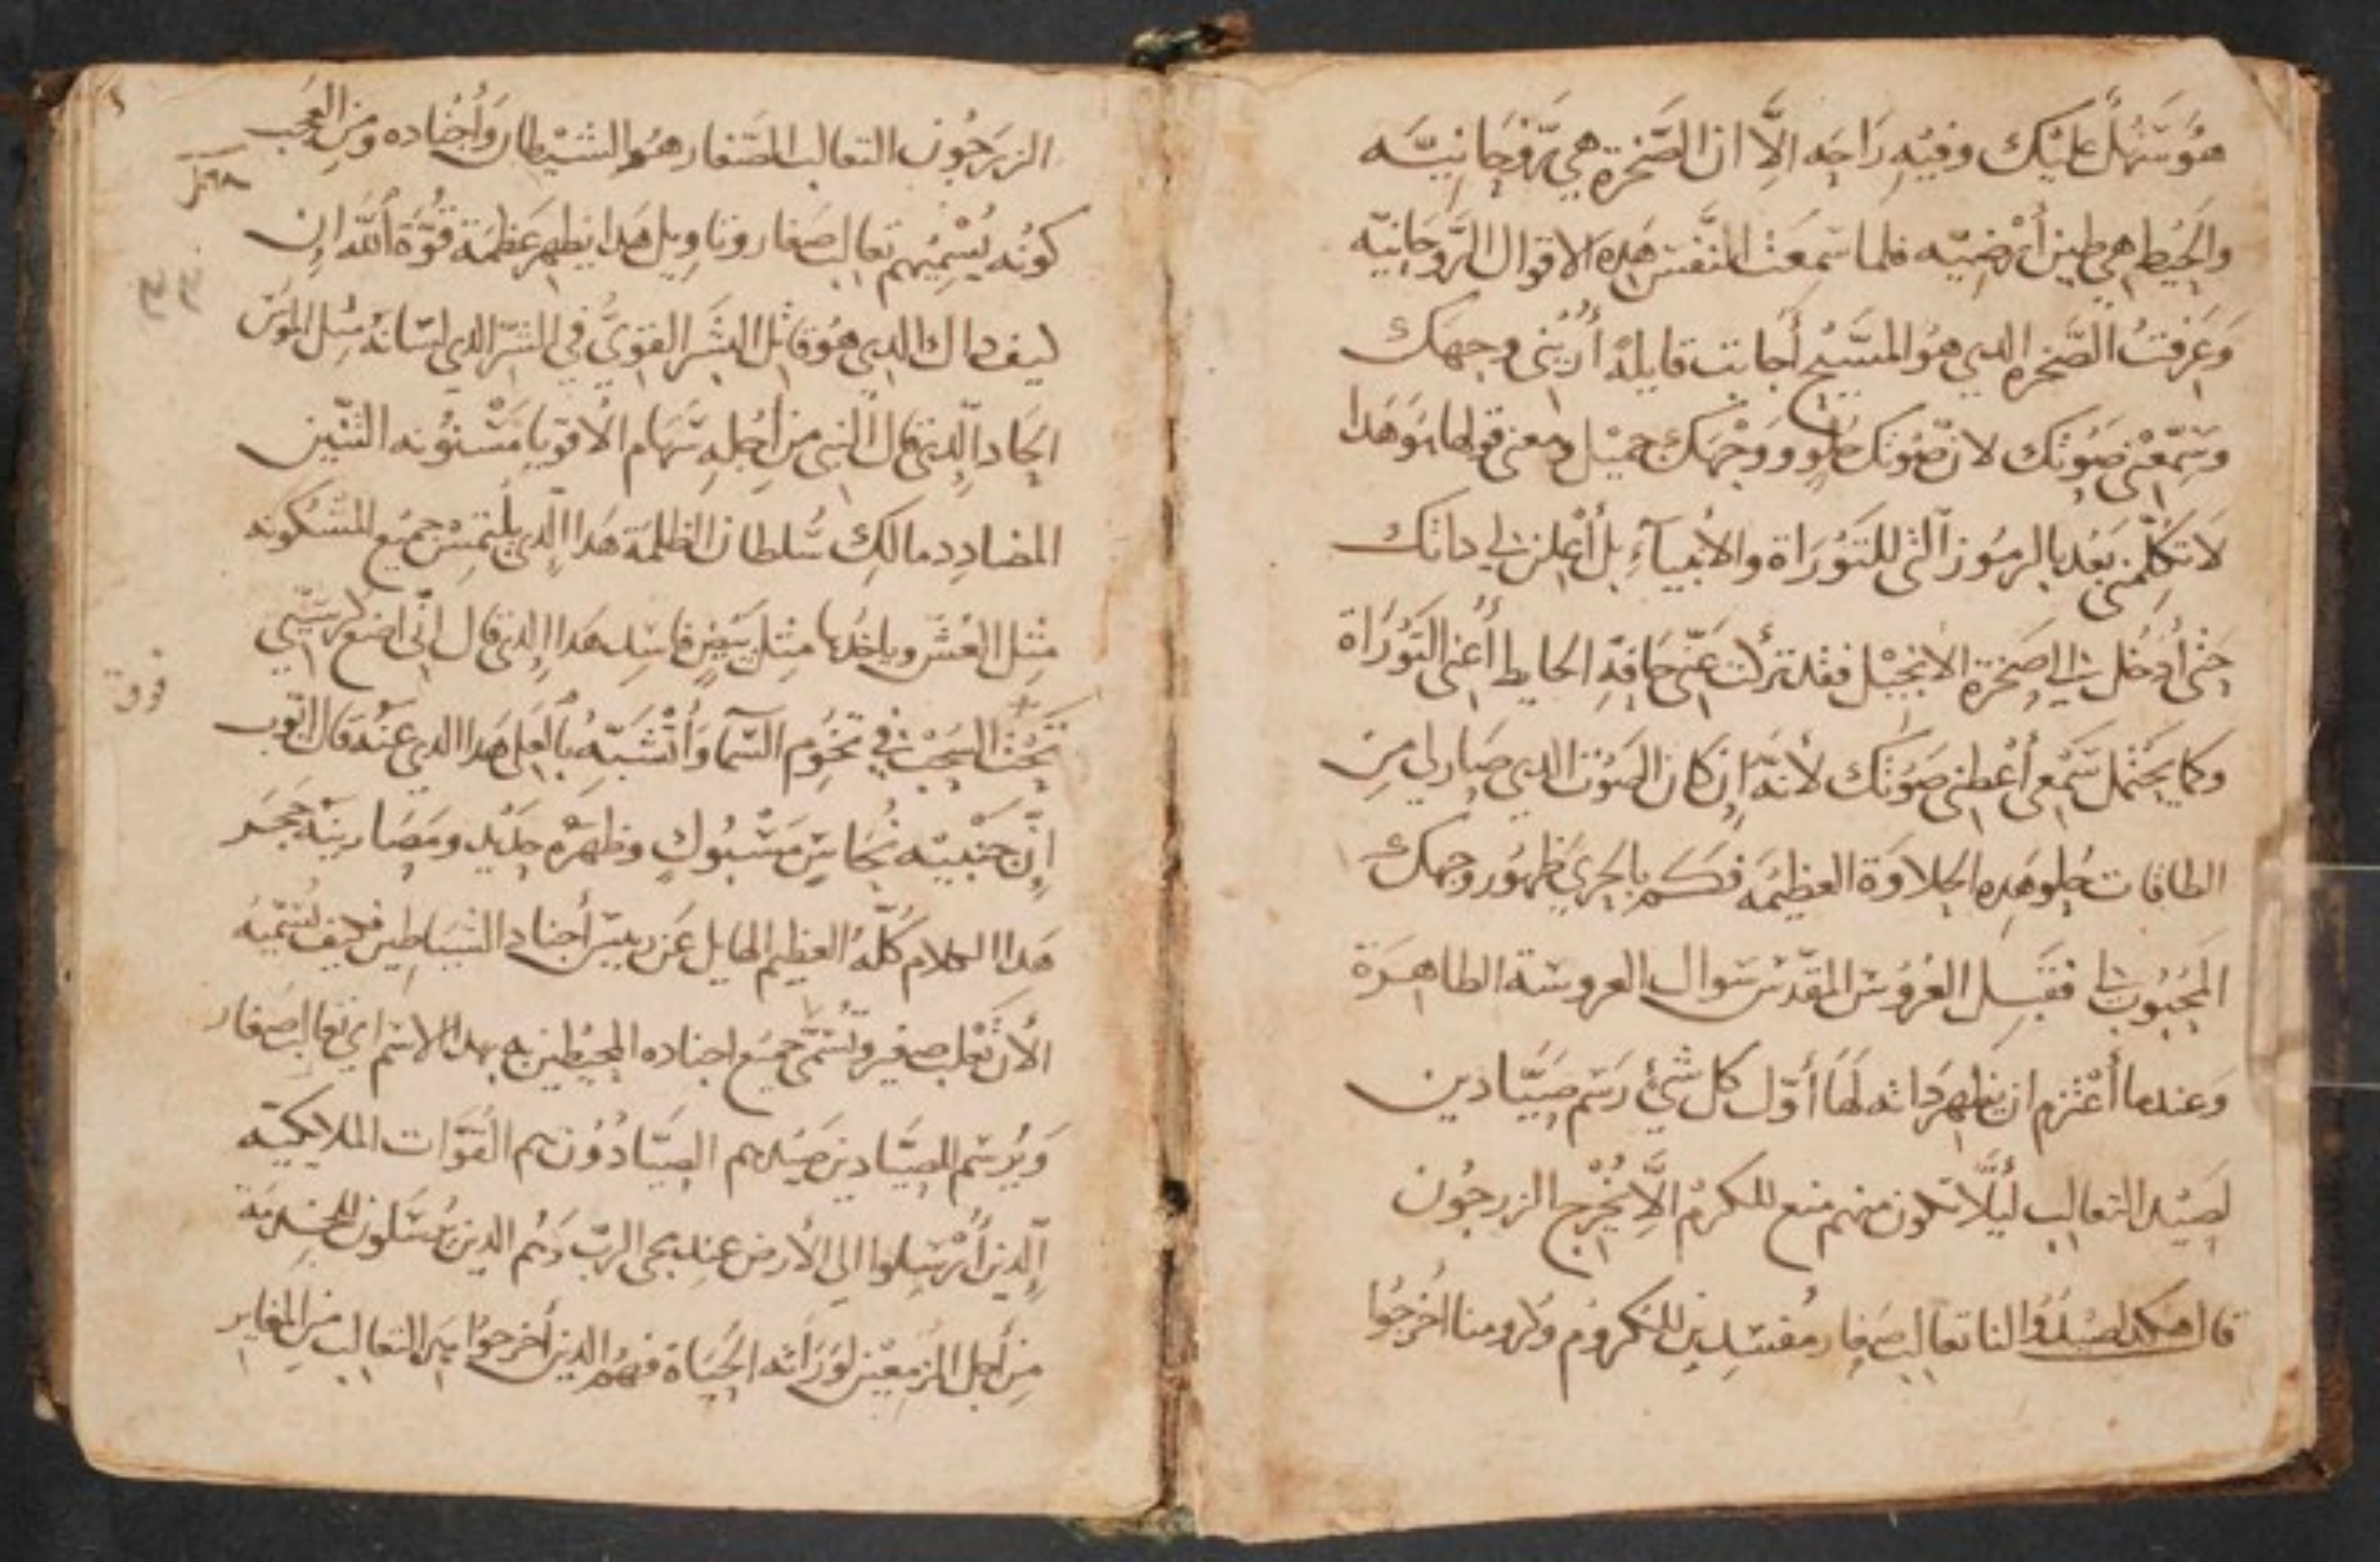 هُوَ سَهْلٌ عليْك وفيْه رَاحَه الِاَّ ان الصَّخرة هي رَوْحَانيَّه
والحَيْط هي طين أرْضيّه فلما سَمِعَت النَّفس هَده الاقوال الرَّوحَانيّه
وَعَرَفَتْ الصَّخره الدي هُو المسَيْح أَجابت قايلهْ أرُيْنى وجهَك
وسَمّعْنى صَوُتك لان صَوُتك حُلوو وَوَجْهَك جميْل ومعنى قولها هَوهَدا
لاَ تكلّمنى بَعْد بالرمُوز آلتى للتَوُرَاة والانبيآء بل أعْلن لى داتك
حَتى أدْخل الى صَخرة الانجيْل فقد تركت عَنّى حَافةِ الحايط أعنى التَوُرَاة
وَكما يحتمل سَمْعى أعْطنى صَوُتك لأنهَ إن كان الصَوُت الدي صَار لي مِن
الطاقات حُلو هَدِه الحلاوَة العظيمَه فكَم بالحَري ظهُور وَجهك
المحْبُوب لى فقَبِل العرُوُس المقدّسْ سَوال العروسَة الطاهَرة
وَعندما أعْتزم ان يظهر دَاته لهَا أوّل كل شَئ رَسَم صَيَّادين
لصَيْد التعالب ليُلاَّ تكون منهم منع للكرمْ الاَّ يُخْرج الزرجوُن
قال هَكدا صْيدُوُا لنا تعالب صَغِار مُفسَدين للكروُم وكرومنا اخرَجُوا
الزرَجوُن التعالب الصَّغار هوُ الشيْطان وأجْناده ومن العَجب
كوُنه يُسْميهم تعالب صَغار وتاويل هَدا يظهر عَظمَة قُوَّة اللَّه ان
كيف داك الدي هوُ قاتل البشَر القوىّ في الشرّ الدي لسَانه مِثل الموُسَ
الحاد الّدى قال النبى من أجْلهِ سَهَام الاقويا مَسْنوُنه التنّين
المضادِد مالك سُلطان الظلمَة هَدا الّدي يلتمسْ جميع المسْكونه
مثل العُشّ وياخُدها مثِل بَيْضٍ فاسِد هَدا الدى قال انّى اضع كرسيّي
تحَتْ السَحب في تخوم السَّما وَأتشَبّه بالعَلى هَدا الدي عنهْ قال ايوُب
إنّ جَنْبَيْه نُحَاسٍ مَسْبُوكٍ وظهْره حَدْيد ومَصَارينَهْ حَجَر
هَدا الكلام كُلّهُ العظيم الهايل عَن رييسَ أجناد الشياطين فكيف تُسَميّهُ
الأن تَعْلب صغير وتُسَمّى جميْع اجناده المحيْطين به بهدا الاسَم اي تعالب صغار
وَيُرسَم للصيَّادين صَيْدهم الصيَّادوُن هم القوَّات الملايكيّه
الّدين أُرسَلوا الى الأرض عند مجى الربّ وَهُم الدين يُرسَلون للخدمَة
مِن أجل المزمعيْن لوَرَاثه الحيَاة فهُم الدين أخرجوُا هَده التعالب من المغاير
فوق